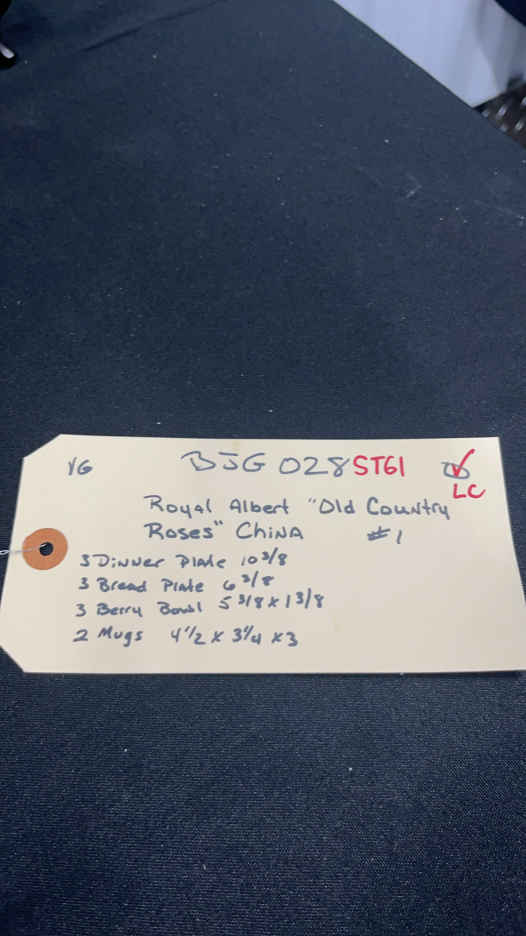 VG BJG 028 ST61
LC
Royal Albert "Old Country
Roses" China #1
3 Dinner Plate 10 3/8
3 Bread Plate 6 3/8
3 Berry Bowl 5 3/8 x 1 3/8
2 Mugs 4 1/2 x 3 1/4 x 3